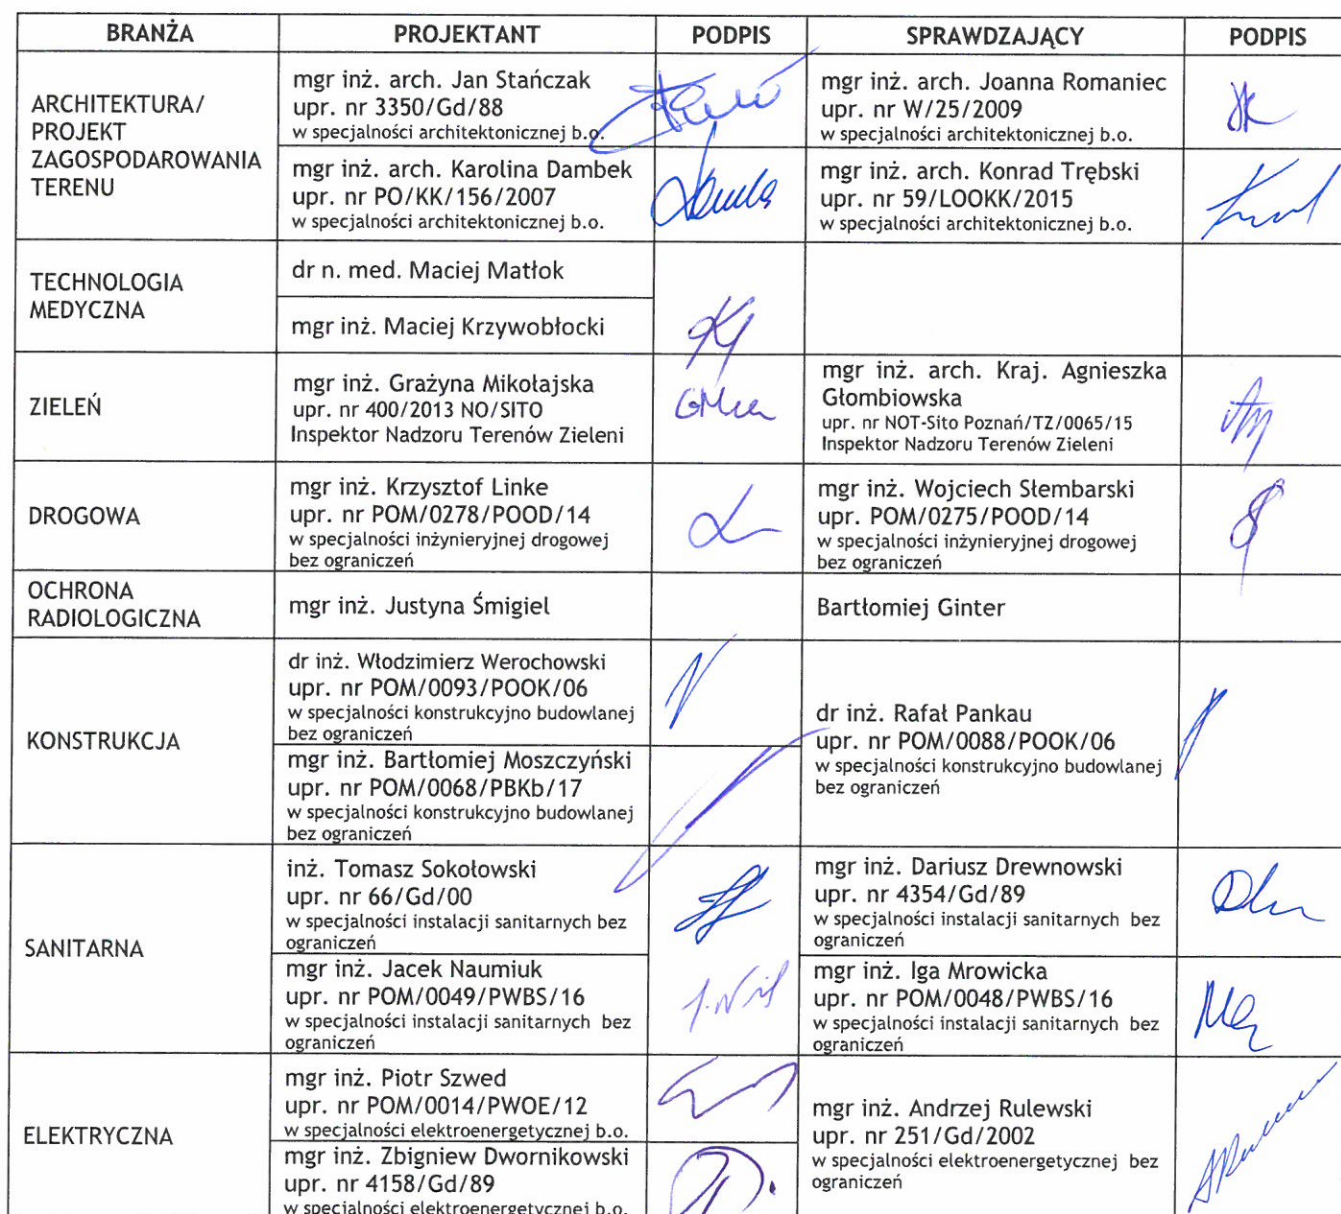 BRANŻA PROJEKTANT PODPIS SPRAWDZAJĄCY PODPIS
ARCHITEKTURA/
PROJEKT
ZAGOSPODAROWANIA
TERENU
mgr inż. arch. Jan Stańczak
upr. nr 3350/Gd/88
w specjalności architektonicznej b.o.
mgr inż. arch. Joanna Romaniec
upr. nr W/25/2009
w specjalności architektonicznej b.o.
mgr inż. arch. Karolina Dambek
upr. nr PO/KK/156/2007
w specjalności architektonicznej b.o.
mgr inż. arch. Konrad Trębski
upr. nr 59/LOOKK/2015
w specjalności architektonicznej b.o.
TECHNOLOGIA
MEDYCZNA
dr n. med. Maciej Matłok
mgr inż. Maciej Krzywobłocki
ZIELEŃ
mgr inż. Grażyna Mikołajska
upr. nr 400/2013 NO/SITO
Inspektor Nadzoru Terenów Zieleni
mgr inż. arch. Kraj. Agnieszka
Głombiowska
upr. nr NOT-Sito Poznań/TZ/0065/15
Inspektor Nadzoru Terenów Zieleni
DROGOWA
mgr inż. Krzysztof Linke
upr. nr POM/0278/POOD/14
w specjalności inżynieryjnej drogowej
bez ograniczeń
mgr inż. Wojciech Słembarski
upr. POM/0275/POOD/14
w specjalności inżynieryjnej drogowej
bez ograniczeń
OCHRONA
RADIOLOGICZNA
mgr inż. Justyna Śmigiel
Bartłomiej Ginter
KONSTRUKCJA
dr inż. Włodzimierz Werochowski
upr. nr POM/0093/POOK/06
w specjalności konstrukcyjno budowlanej
bez ograniczeń
mgr inż. Bartłomiej Moszczyński
upr. nr POM/0068/PBKb/17
w specjalności konstrukcyjno budowlanej
bez ograniczeń
dr inż. Rafał Pankau
upr. nr POM/0088/POOK/06
w specjalności konstrukcyjno budowlanej
bez ograniczeń
SANITARNA
inż. Tomasz Sokołowski
upr. nr 66/Gd/00
w specjalności instalacji sanitarnych bez
ograniczeń
mgr inż. Dariusz Drewnowski
upr. nr 4354/Gd/89
w specjalności instalacji sanitarnych bez
ograniczeń
mgr inż. Jacek Naumiuk
upr. nr POM/0049/PWBS/16
w specjalności instalacji sanitarnych bez
ograniczeń
mgr inż. Iga Mrowicka
upr. nr POM/0048/PWBS/16
w specjalności instalacji sanitarnych bez
ograniczeń
ELEKTRYCZNA
mgr inż. Piotr Szwed
upr. nr POM/0014/PWOE/12
w specjalności elektroenergetycznej b.o.
mgr inż. Zbigniew Dwornikowski
upr. nr 4158/Gd/89
w specjalności elektroenergetycznej b.o.
mgr inż. Andrzej Rulewski
upr. nr 251/Gd/2002
w specjalności elektroenergetycznej bez
ograniczeń